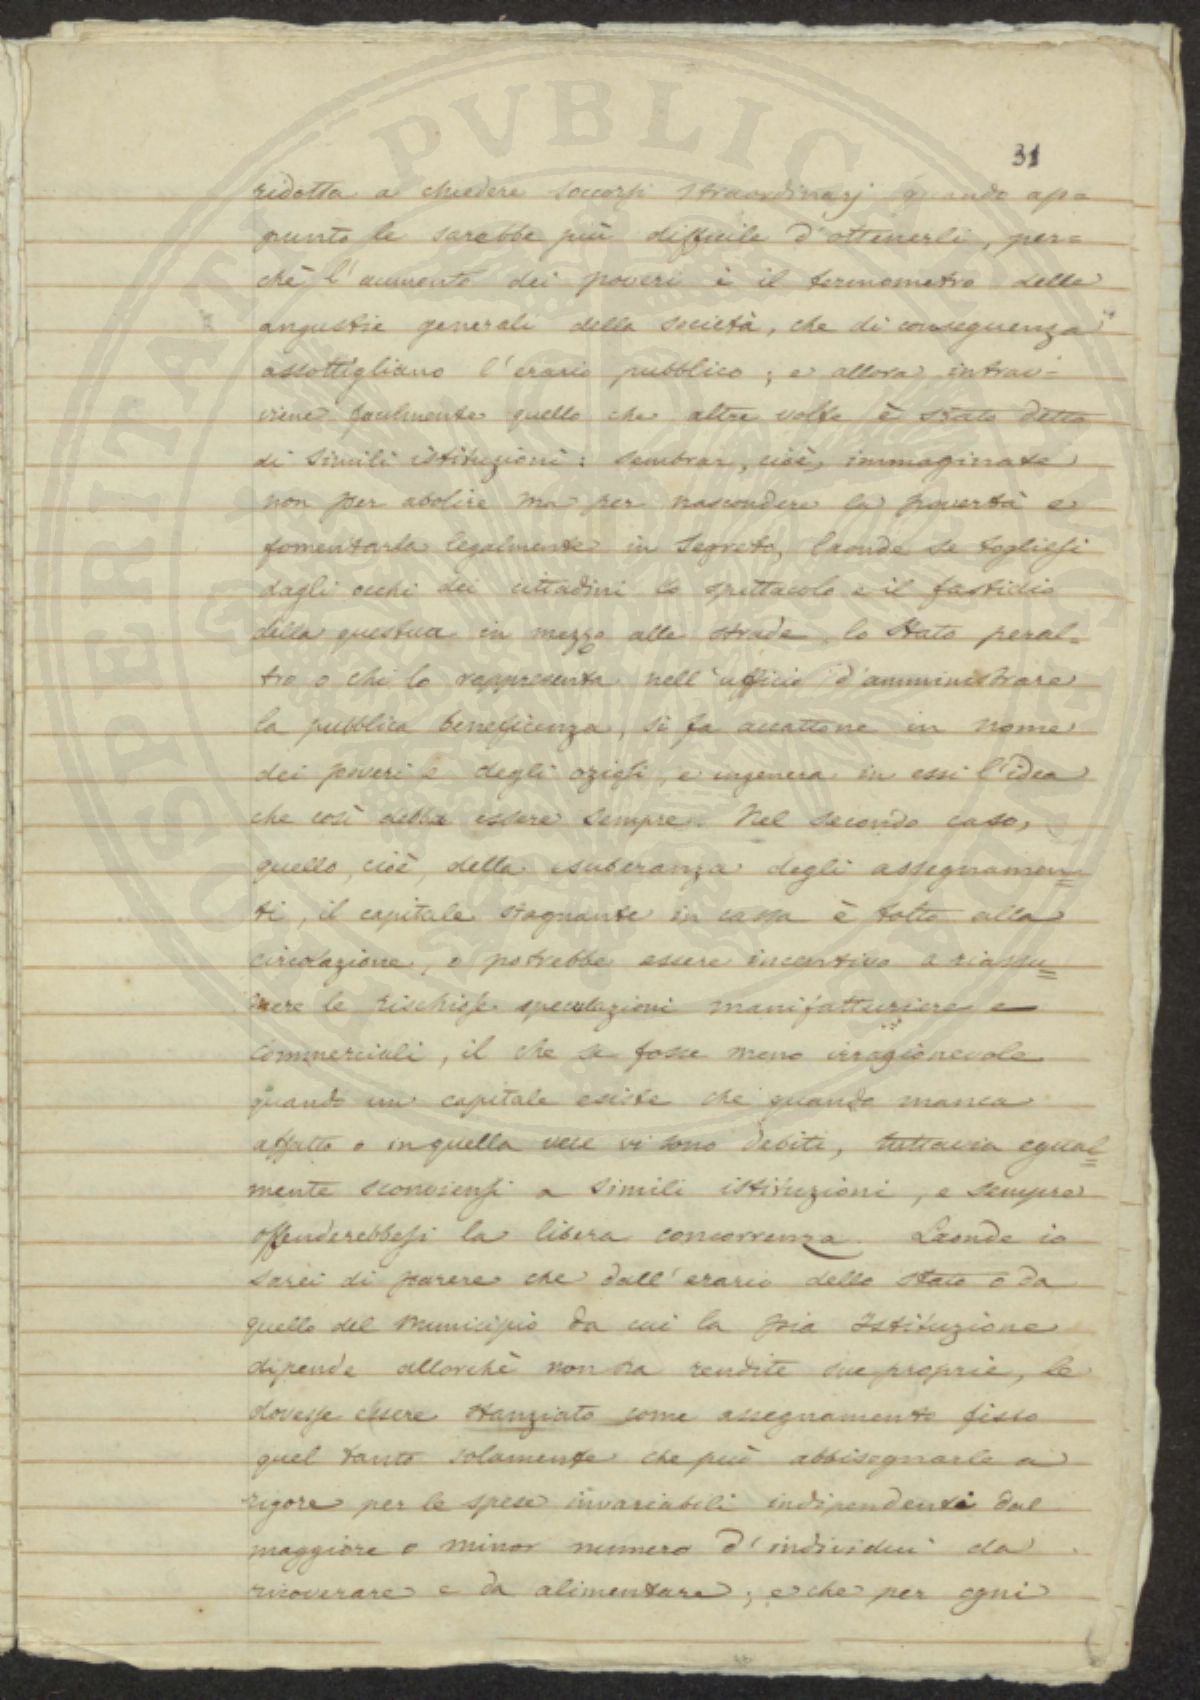 31
ridotta a chiedere soccorsi straordinarj quando ap=
punto le sarebbe più difficile d'ottenerli, per=
chè l'aumento dei poveri è il termometro delle
angustie generali della società, che di conseguenza
assottigliano l'erario pubblico; e allora intrav-
viene facilmente quello che altre volte è stato detto
di simili istituzioni: sembrar, cioè, immaginate
non per abolire ma per nascondere la povertà e
fomentarla legalmente in segreto, laonde se togliesi
dagli occhi dei cittadini lo spettacolo e il fastidio
della questua in mezzo alle strade, lo Stato peral=
tro o chi lo rappresenta nell'ufficio d'amministrare
la pubblica beneficenza, si fa accattone in nome
dei poveri e degli oziosi, e ingenera in essi l'idea
che così debba essere sempre. Nel secondo caso,
quello, cioè, della esuberanza degli assegnamen=
ti, il capitale stagnante in cassa è tolto alla
circolazione, o potrebbe essere incentivo a riassu=
mere le rischiose speculazioni manifatturiere e
commerciali, il che se fosse meno irragionevole
quando un capitale esiste che quando manca
affatto o in quella vece vi sono debiti, tuttavia egual=
mente sconviensi a simili istituzioni, e sempre
offenderebbesi la libera concorrenza. Laonde io
sarei di parere che dall'erario dello Stato o da
quello del Municipio da cui la pia Istituzione
dipende allorchè non ha rendite sue proprie, le
dovesse essere stanziato come assegnamento fisso
quel tanto solamente che può abbisognarle a
rigore per le spese invariabili indipendenti dal
maggiore o minor numero d'individui da
ricoverare e da alimentare; e che per ogni
PROSPERITATI PVBLICAE AVGENDAE